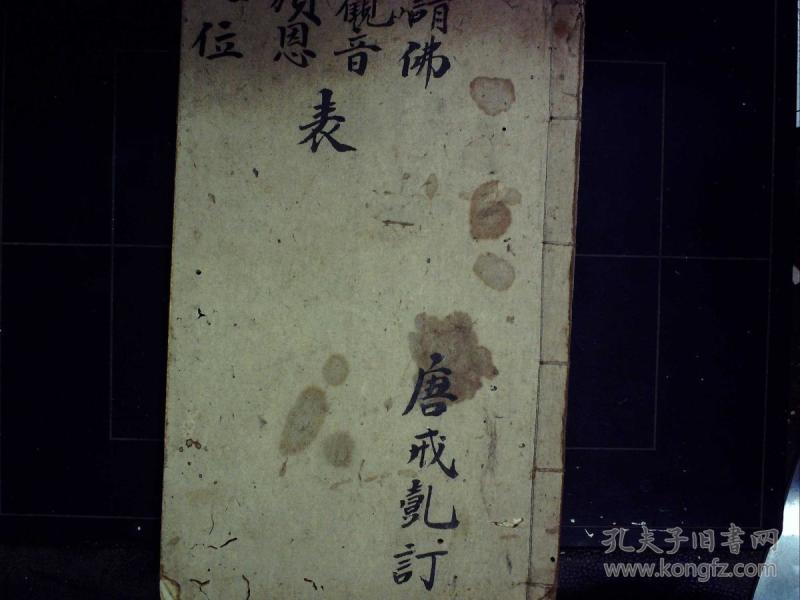 請佛
觀音
恩
位
表
唐戒乹訂
孔夫子旧书网
www.kongfz.com